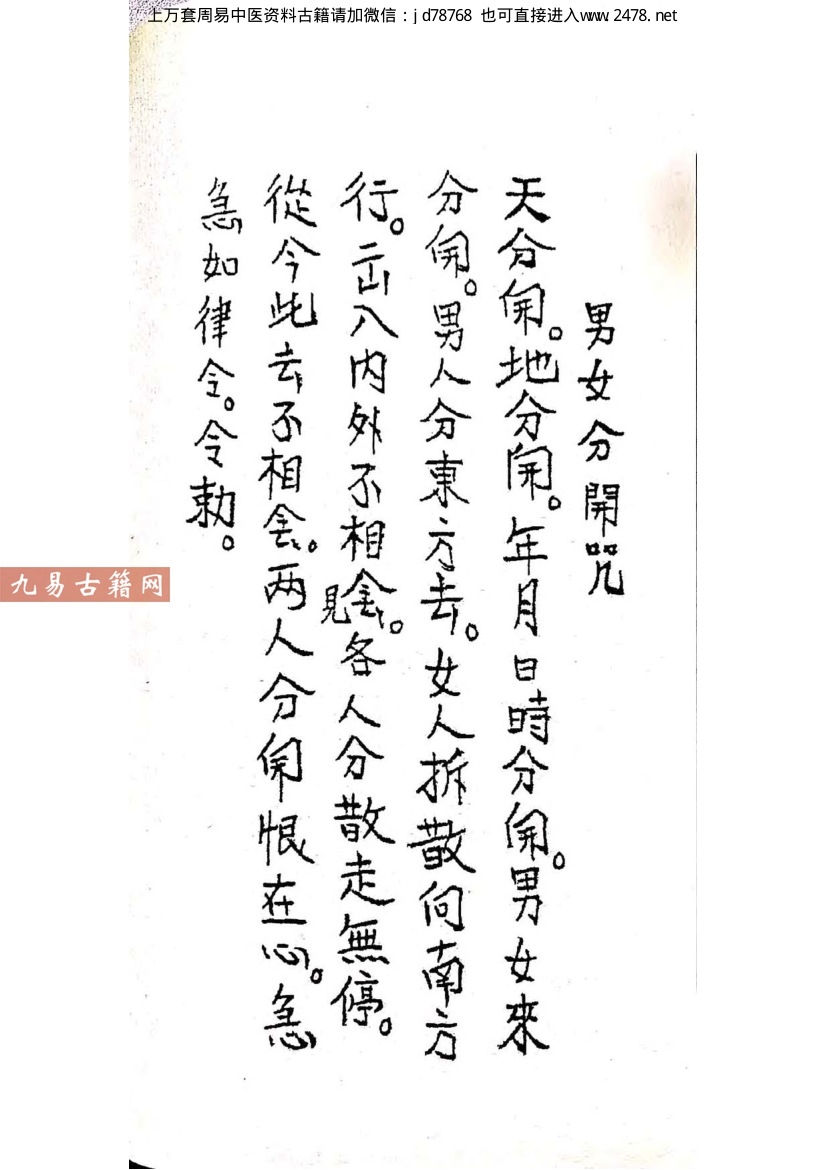 上万套周易中医资料古籍请加微信：jd78768 也可直接进入www.2478.net
男女分開咒
天分開。地分開。年月日時分開。男女來
分開。男人分東方去。女人拆散向南方
行。出入内外不相會見。各人分散走無停。
從今此去不相會。两人分開恨在心。急
急如律令。令勅。
九易古籍网